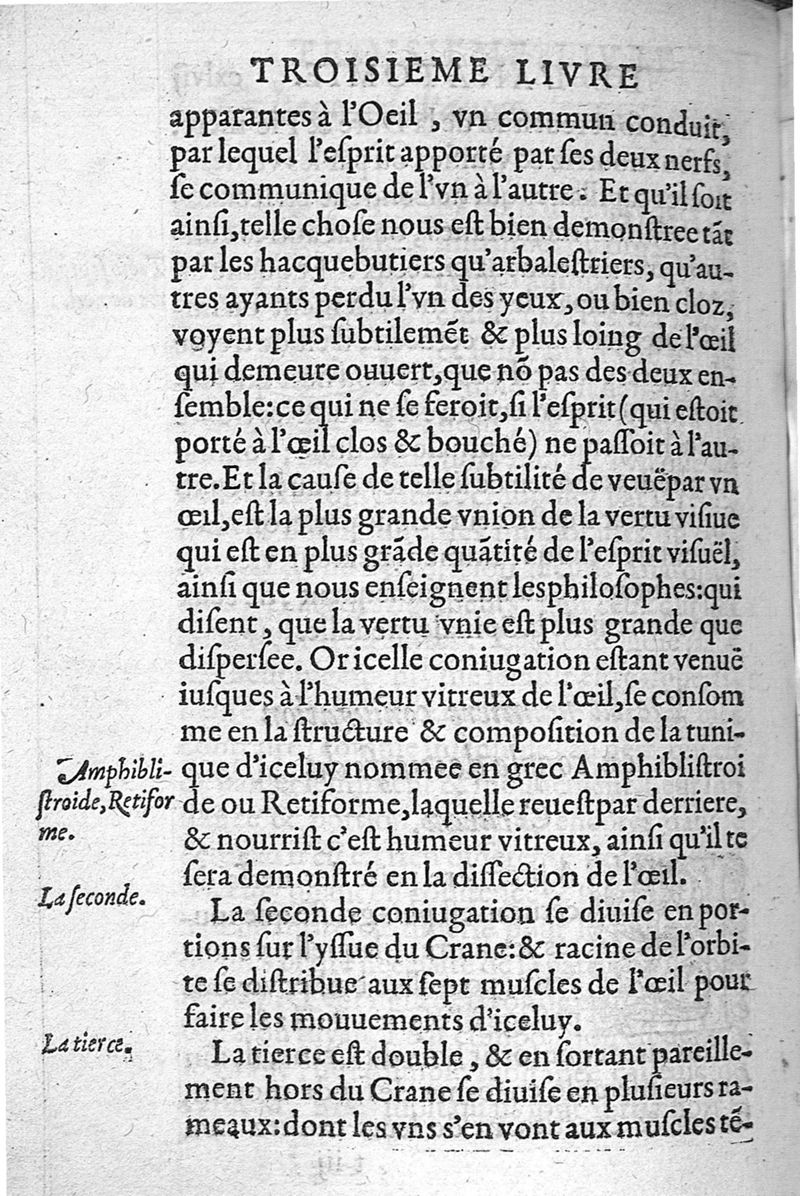 TROISIEME LIVRE
apparantes à l'Oeil , vn commun conduit,
par lequel l'eſprit apporté par ſes deux nerfs,
ſe communique de l'vn à l'autre. Et qu'il ſoit
ainſi,telle choſe nous eſt bien demonſtree tãt
par les hacquebutiers qu'arbaleſtriers, qu'au-
tres ayants perdu l'vn des yeux,ou bien cloz,
voyent plus ſubtilemẽt & plus loing de l'œil
qui demeure ouuert,que nõ pas des deux en-
ſemble:ce qui ne ſe feroit,ſi l'eſprit (qui eſtoit
porté à l'œil clos & bouché) ne paſſoit à l'au-
tre.Et la cauſe de telle ſubtilité de veuëpar vn
œil,eſt la plus grande vnion de la vertu viſiue
qui eſt en plus grãde quãtité de l'eſprit viſuël,
ainſi que nous enſeignent lesphiloſophes:qui
diſent , que la vertu vnie eſt plus grande que
diſperſee. Or icelle coniugation eſtant venuë
iuſques à l'humeur vitreux de l'œil,ſe conſom
me en la ſtructure & compoſition de la tuni-
Amphibli-
ſtroide,Retifor
me.
que d'iceluy nommee en grec Amphibliſtroi
de ou Retiforme,laquelle reueſtpar derriere,
& nourriſt c'eſt humeur vitreux, ainſi qu'il te
ſera demonſtré en la diſſection de l'œil.
La ſeconde.
La ſeconde coniugation ſe diuiſe en por-
tions ſur l'yſſue du Crane:& racine de l'orbi-
te ſe diſtribue aux ſept muſcles de l'œil pour
faire les mouuements d'iceluy.
La tierce.
La tierce eſt double , & en ſortant pareille-
ment hors du Crane ſe diuiſe en pluſieurs ra-
meaux:dont les vns s'en vont aux muſcles tẽ-